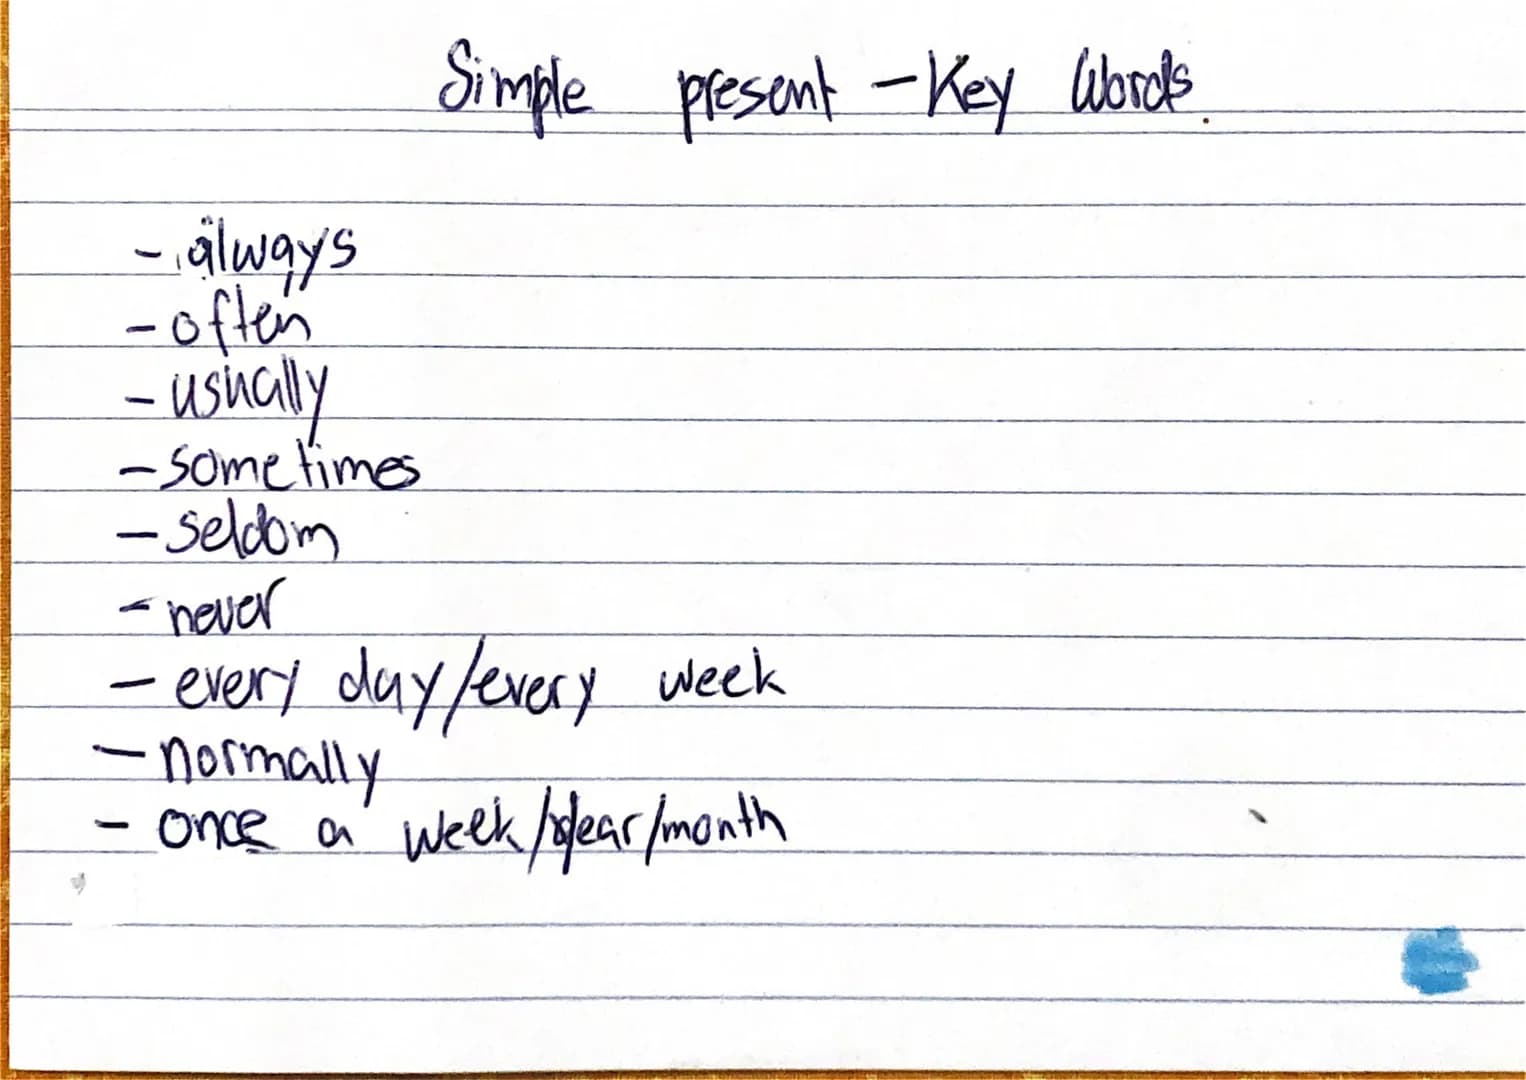 Simple present - Key Words
- always
- often
- usually
- sometimes
- seldom
- never
- every day/every week
- normally
- once a week/year/month